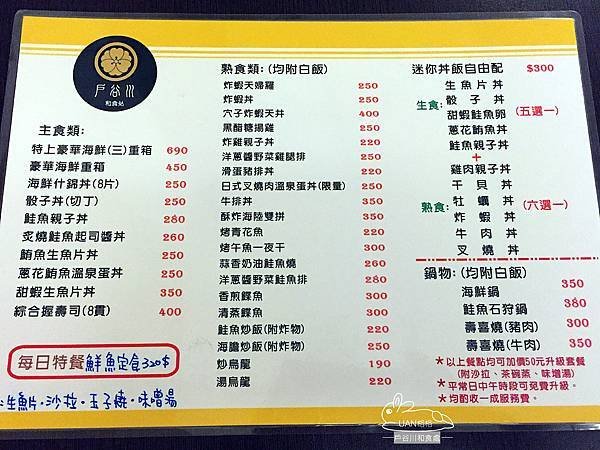 戶谷川
和食処
主食類:
特上豪華海鮮(三)重箱 690
豪華海鮮重箱 450
海鮮什錦丼(8片) 250
骰子丼(切丁) 250
鮭魚親子丼 280
炙燒鮭魚起司醬丼 260
鮪魚生魚片丼 250
蔥花鮪魚溫泉蛋丼 250
甜蝦生魚片丼 350
綜合握壽司(8貫) 400
每日特餐 鮮魚定食320$
生魚片·沙拉·玉子燒·味噌湯
熟食類:(均附白飯)
炸蝦天婦羅 250
炸蝦丼 250
穴子炸蝦天丼 400
黑醋糖揚雞 250
炸雞親子丼 220
洋蔥醬野菜雞腿排 250
滑蛋豬排丼 220
日式叉燒肉溫泉蛋丼(限量) 250
牛排丼 350
酥炸海陸雙拼 350
烤青花魚 220
烤午魚一夜干 300
蒜香奶油鮭魚燒 260
洋蔥醬野菜鮭魚排 280
香煎鰈魚 300
清蒸鰈魚 300
鮭魚炒飯(附炸物) 220
海膽炒飯(附炸物) 250
炒烏龍 190
湯烏龍 220
迷你丼飯自由配 $300
生魚片丼
生食: 骰子丼 (五選一)
甜蝦鮭魚卵
蔥花鮪魚丼
鮭魚親子丼
+
雞肉親子丼
干貝丼
熟食: 牡蠣丼 (六選一)
炸蝦丼
牛肉丼
叉燒丼
鍋物:(均附白飯)
海鮮鍋 350
鮭魚石狩鍋 380
壽喜燒(豬肉) 300
壽喜燒(牛肉) 350
*以上餐點均可加價50元升級套餐
(附沙拉、茶碗蒸、味增湯)
*平常日中午時段可免費升級。
*均酌收一成服務費。
UAN悟悟
戶谷川和食處